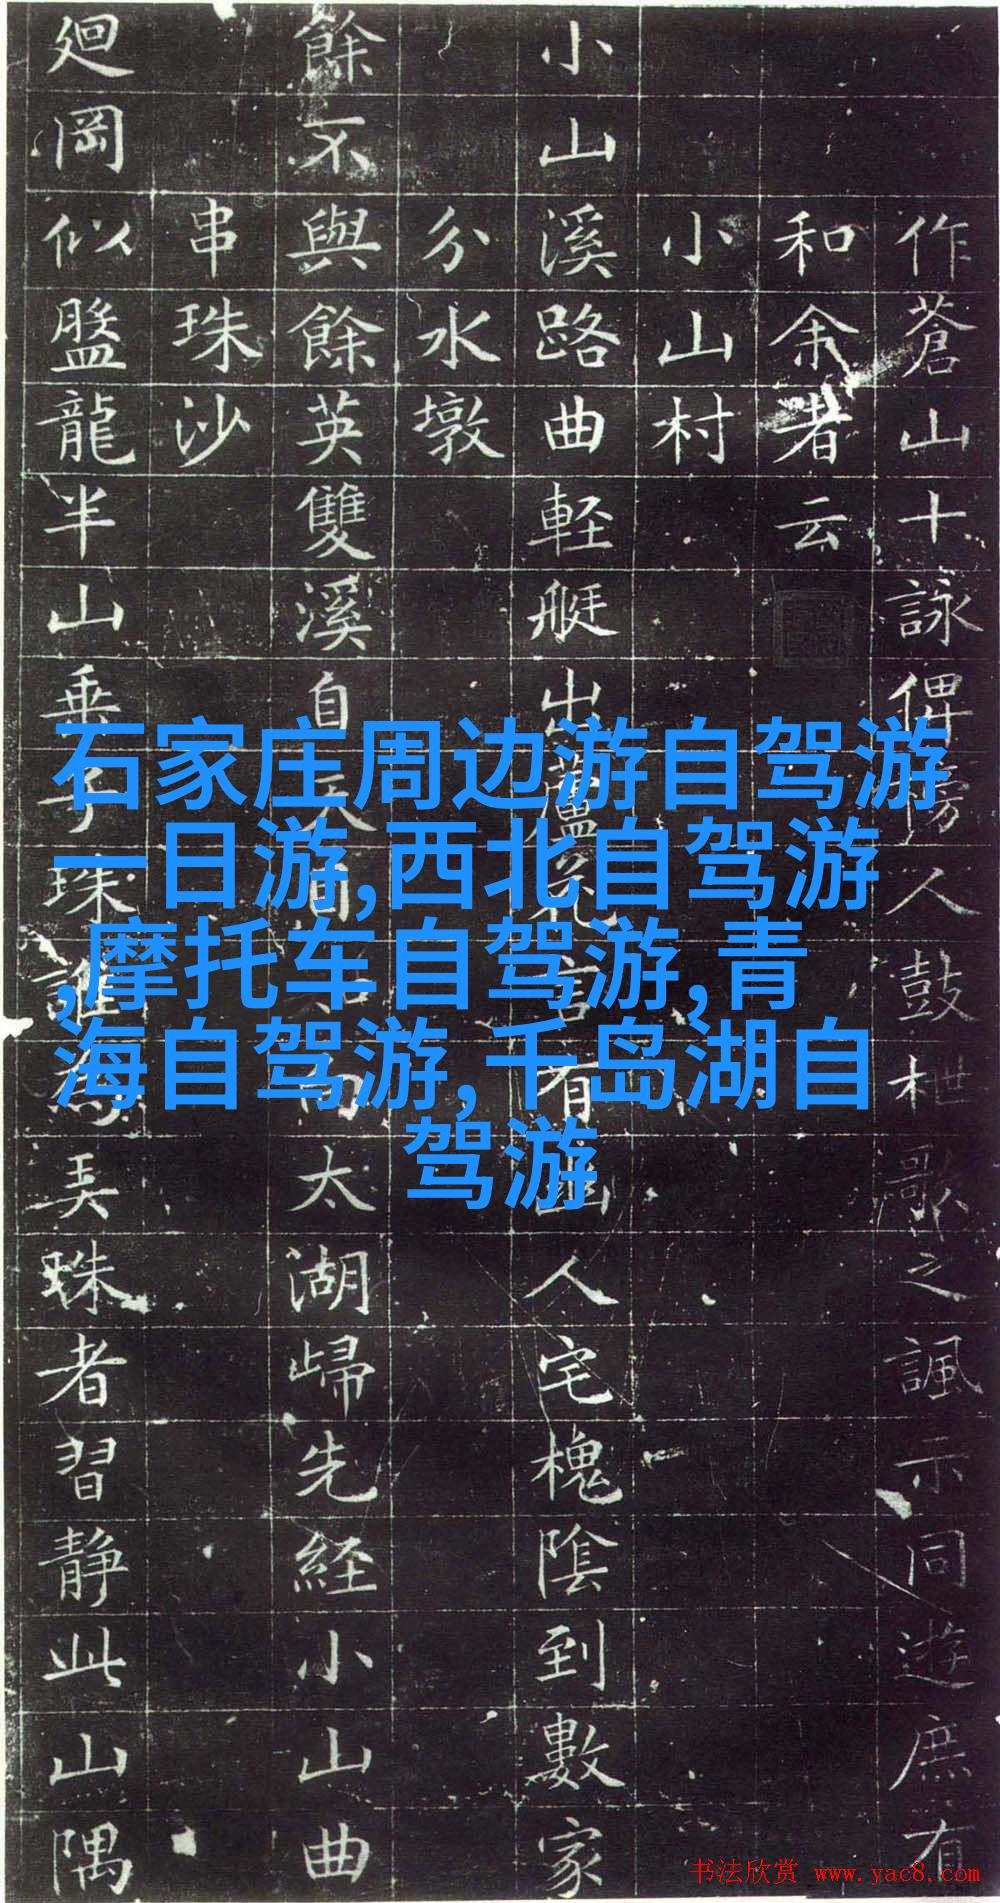 作蒼山十詠俾人鼓枻歌之諷示同遊庶有
和余者云
小山村
小山溪路曲軽艇出蘆花言有幽人宅槐陰到數家
分水墩
餘不與餘英雙溪自天目向太湖歸先経小山曲
串珠沙
廻岡似盤龍半山垂子珠誰為弄珠者習静此山隅
石家庄周边游自驾游
一日游,西北自驾游
,摩托车自驾游,青
海自驾游,千岛湖自
驾游
书法欣赏 www.yac8.com